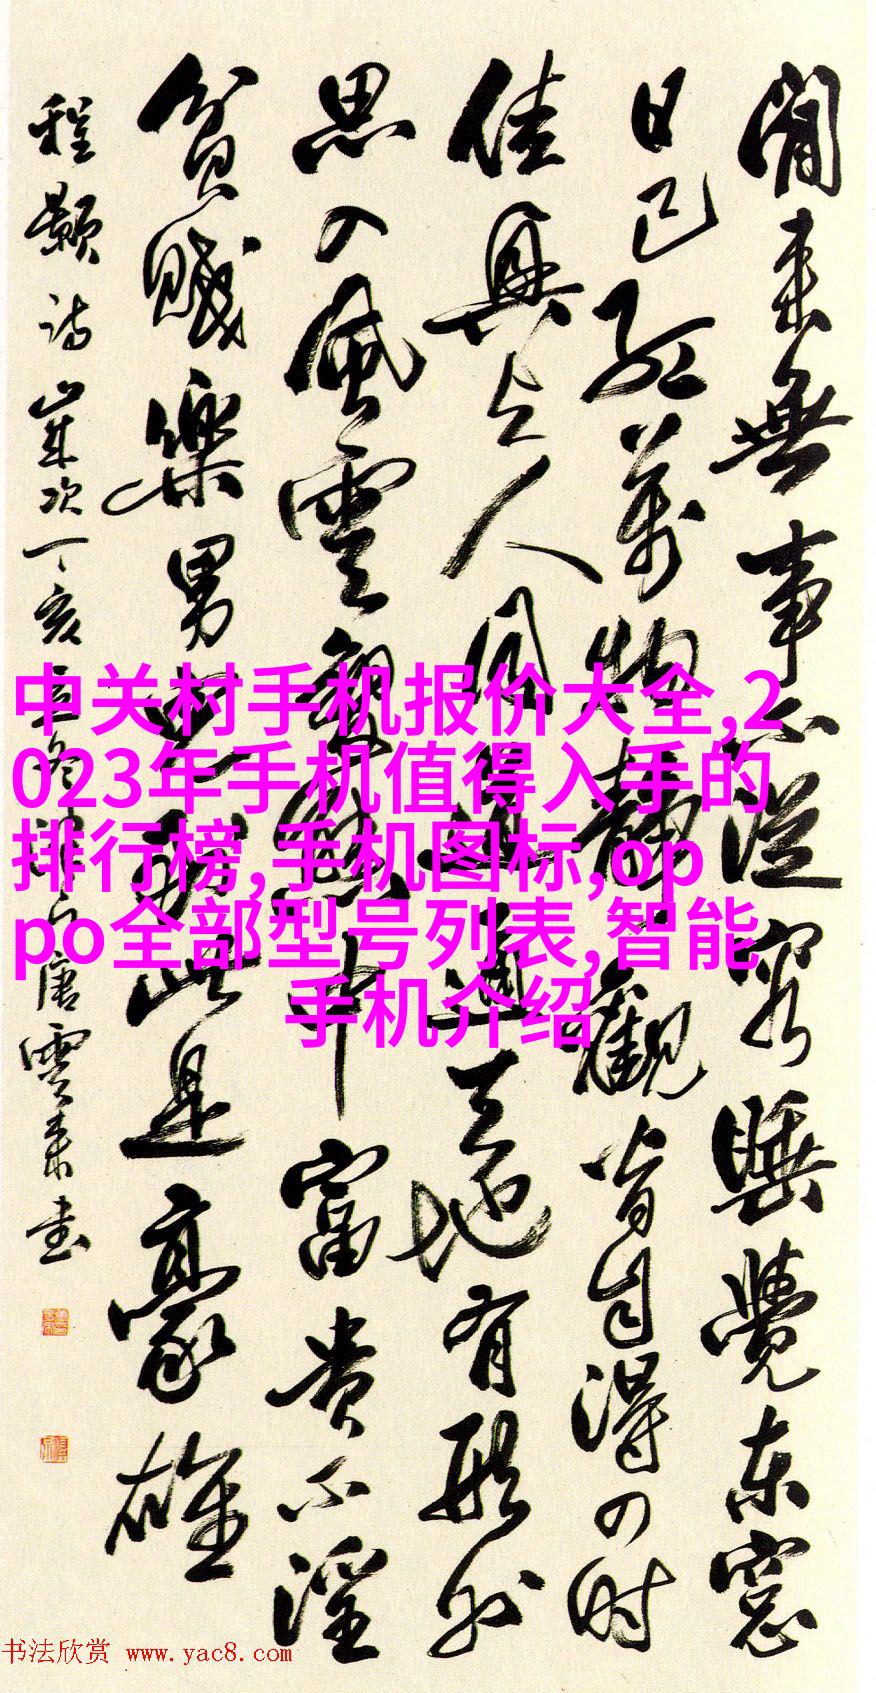 閒来無事不從容睡覺东窗
日已红萬物静觀皆自得四时
佳興与人同道通天地有形外
思入風雲變態中富贵不淫
貧賤樂男兒到此是豪雄
程颢诗 歲次丁亥立冬津门唐雲来书
中关村手机报价大全,2
023年手机值得入手的
排行榜,手机图标,op
po全部型号列表,智能
手机介绍
书法欣赏 www.yac8.com